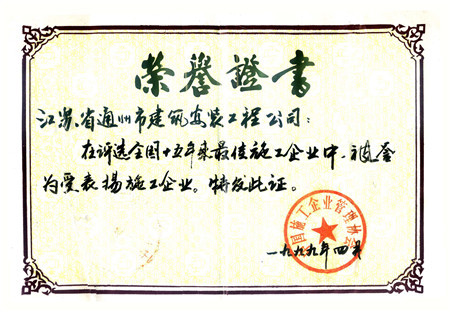 荣誉證書
江苏省通州市建筑安装工程公司:
在评选全国十五年来最佳施工企业中,被答
为受表揚施工企业。特发此证。
国施工企业管理协会
一九九九年四月